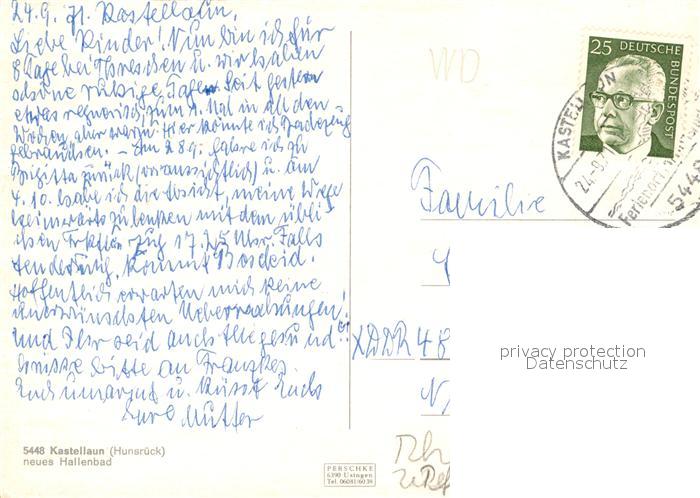 24.9.71. Kastellaun.
Liebe Kinder! Nun bin ich für
8 Tage bei Threschen u. wir haben
schöne ruhige Tage. Seit gestern
etwas regnerisch zum 1. Mal in all den
Wochen, aber warm. Hier könnte ich Badezeug
gebrauchen. – Am 28.9. fahre ich zu
Brigitta zurück (voraussichtlich) u. am
4.10. habe ich die Absicht, meine Wege
heimwärts zu lenken mit dem übli-
chen Frkftr. Zug 17.25 Uhr. Falls
Aenderung, kommt Bescheid.
Hoffentlich erwarten mich keine
unerwünschten Ueberraschungen!
und Ihr seid auch alle gesund!
Grüsse bitte an Franzkes.
Euch umarmt u. küsst Euch
Eure Mutter
5448 Kastellaun (Hunsrück)
neues Hallenbad
PERSCHKE
6390 Usingen
Tel. 06081/6039
WD
25 DEUTSCHE
BUNDESPOST
KASTELLAUN
24.-9.
Ferienort
544
Familie
XDDR 48
privacy protection
Datenschutz